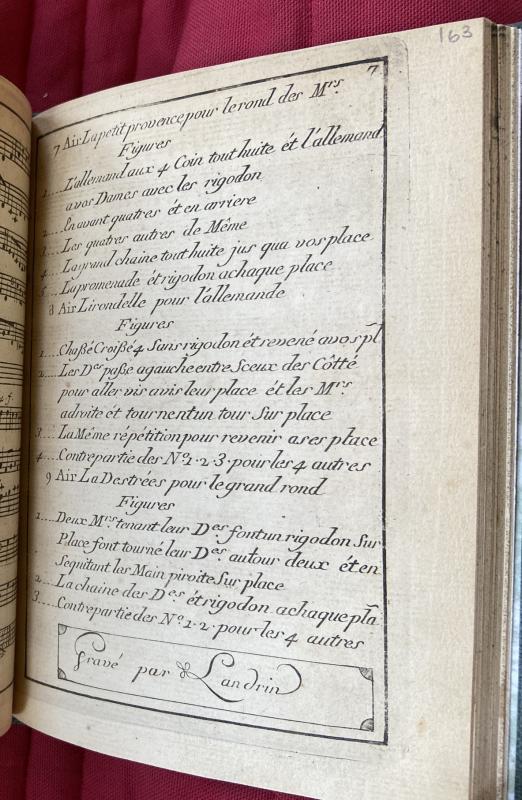 163
7
7 Air La petit provence pour le rond des Mrs.
Figures
1.... L'allemand aux 4 Coin tout huite ét l'allemand
a vos Dames avec les rigodon
2.... En avant quatres ét en arriere
3.... Les quatres autres de Même
4.... La grand chaine tout huite jus qua vos place
5.... La promenade ét rigodon a chaque place
8 Air Lirondelle pour l'allemande
Figures
1.... Chaßé Croißé 4 Sans rigodon ét revené a vos pl
2.... Les Des paße a gauche entre Sceux des Côtté
pour aller vis avis leur place ét les Mrs.
a droite ét tournent un tour Sur place
3.... La Même répétition pour revenir a ses place
4.... Contrepartie des No. 1 · 2 · 3 · pour les 4 autres
9 Air La Destrées pour le grand rond
Figures
1.... Deux Mrs. tenant leur Des font un rigodon Sur
Place font tourné leur Des. autour deux ét en
Sequitant les Main piroite Sur place
2.... La chaine des Des. ét rigodon a chaque pla
3.... Contrepartie des No. 1 · 2 · pour les 4 autres
Gravé par Landrin